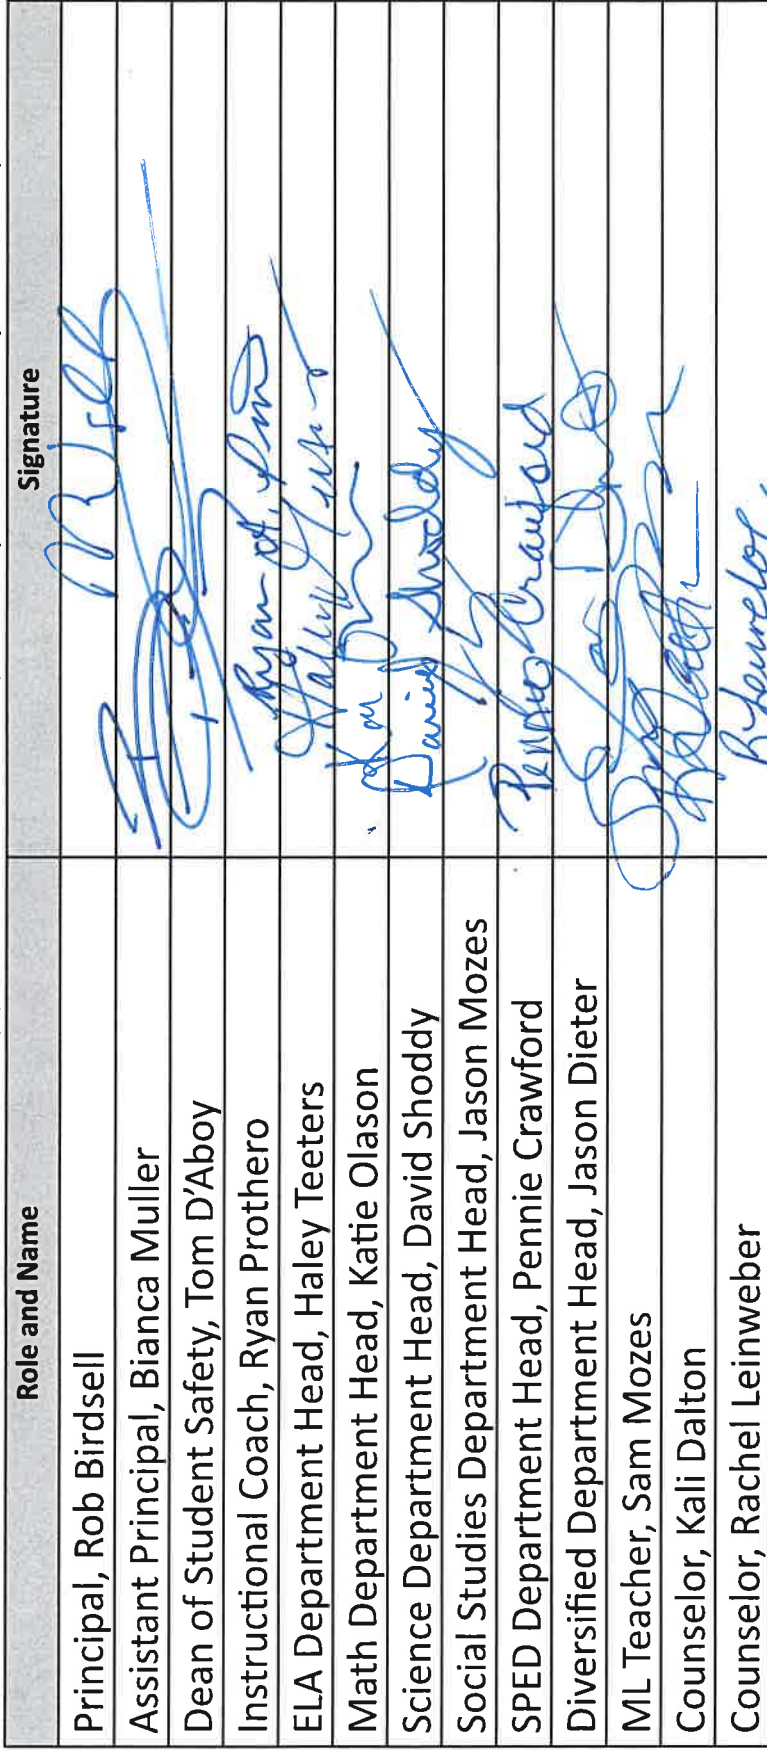 Role and Name Signature
Principal, Rob Birdsell
Assistant Principal, Bianca Muller
Dean of Student Safety, Tom D'Aboy
Instructional Coach, Ryan Prothero Ryan
ELA Department Head, Haley Teeters Haley
Math Department Head, Katie Olason
Science Department Head, David Shoddy David Shoddy
Social Studies Department Head, Jason Mozes
SPED Department Head, Pennie Crawford Pennie Crawford
Diversified Department Head, Jason Dieter
ML Teacher, Sam Mozes
Counselor, Kali Dalton
Counselor, Rachel Leinweber